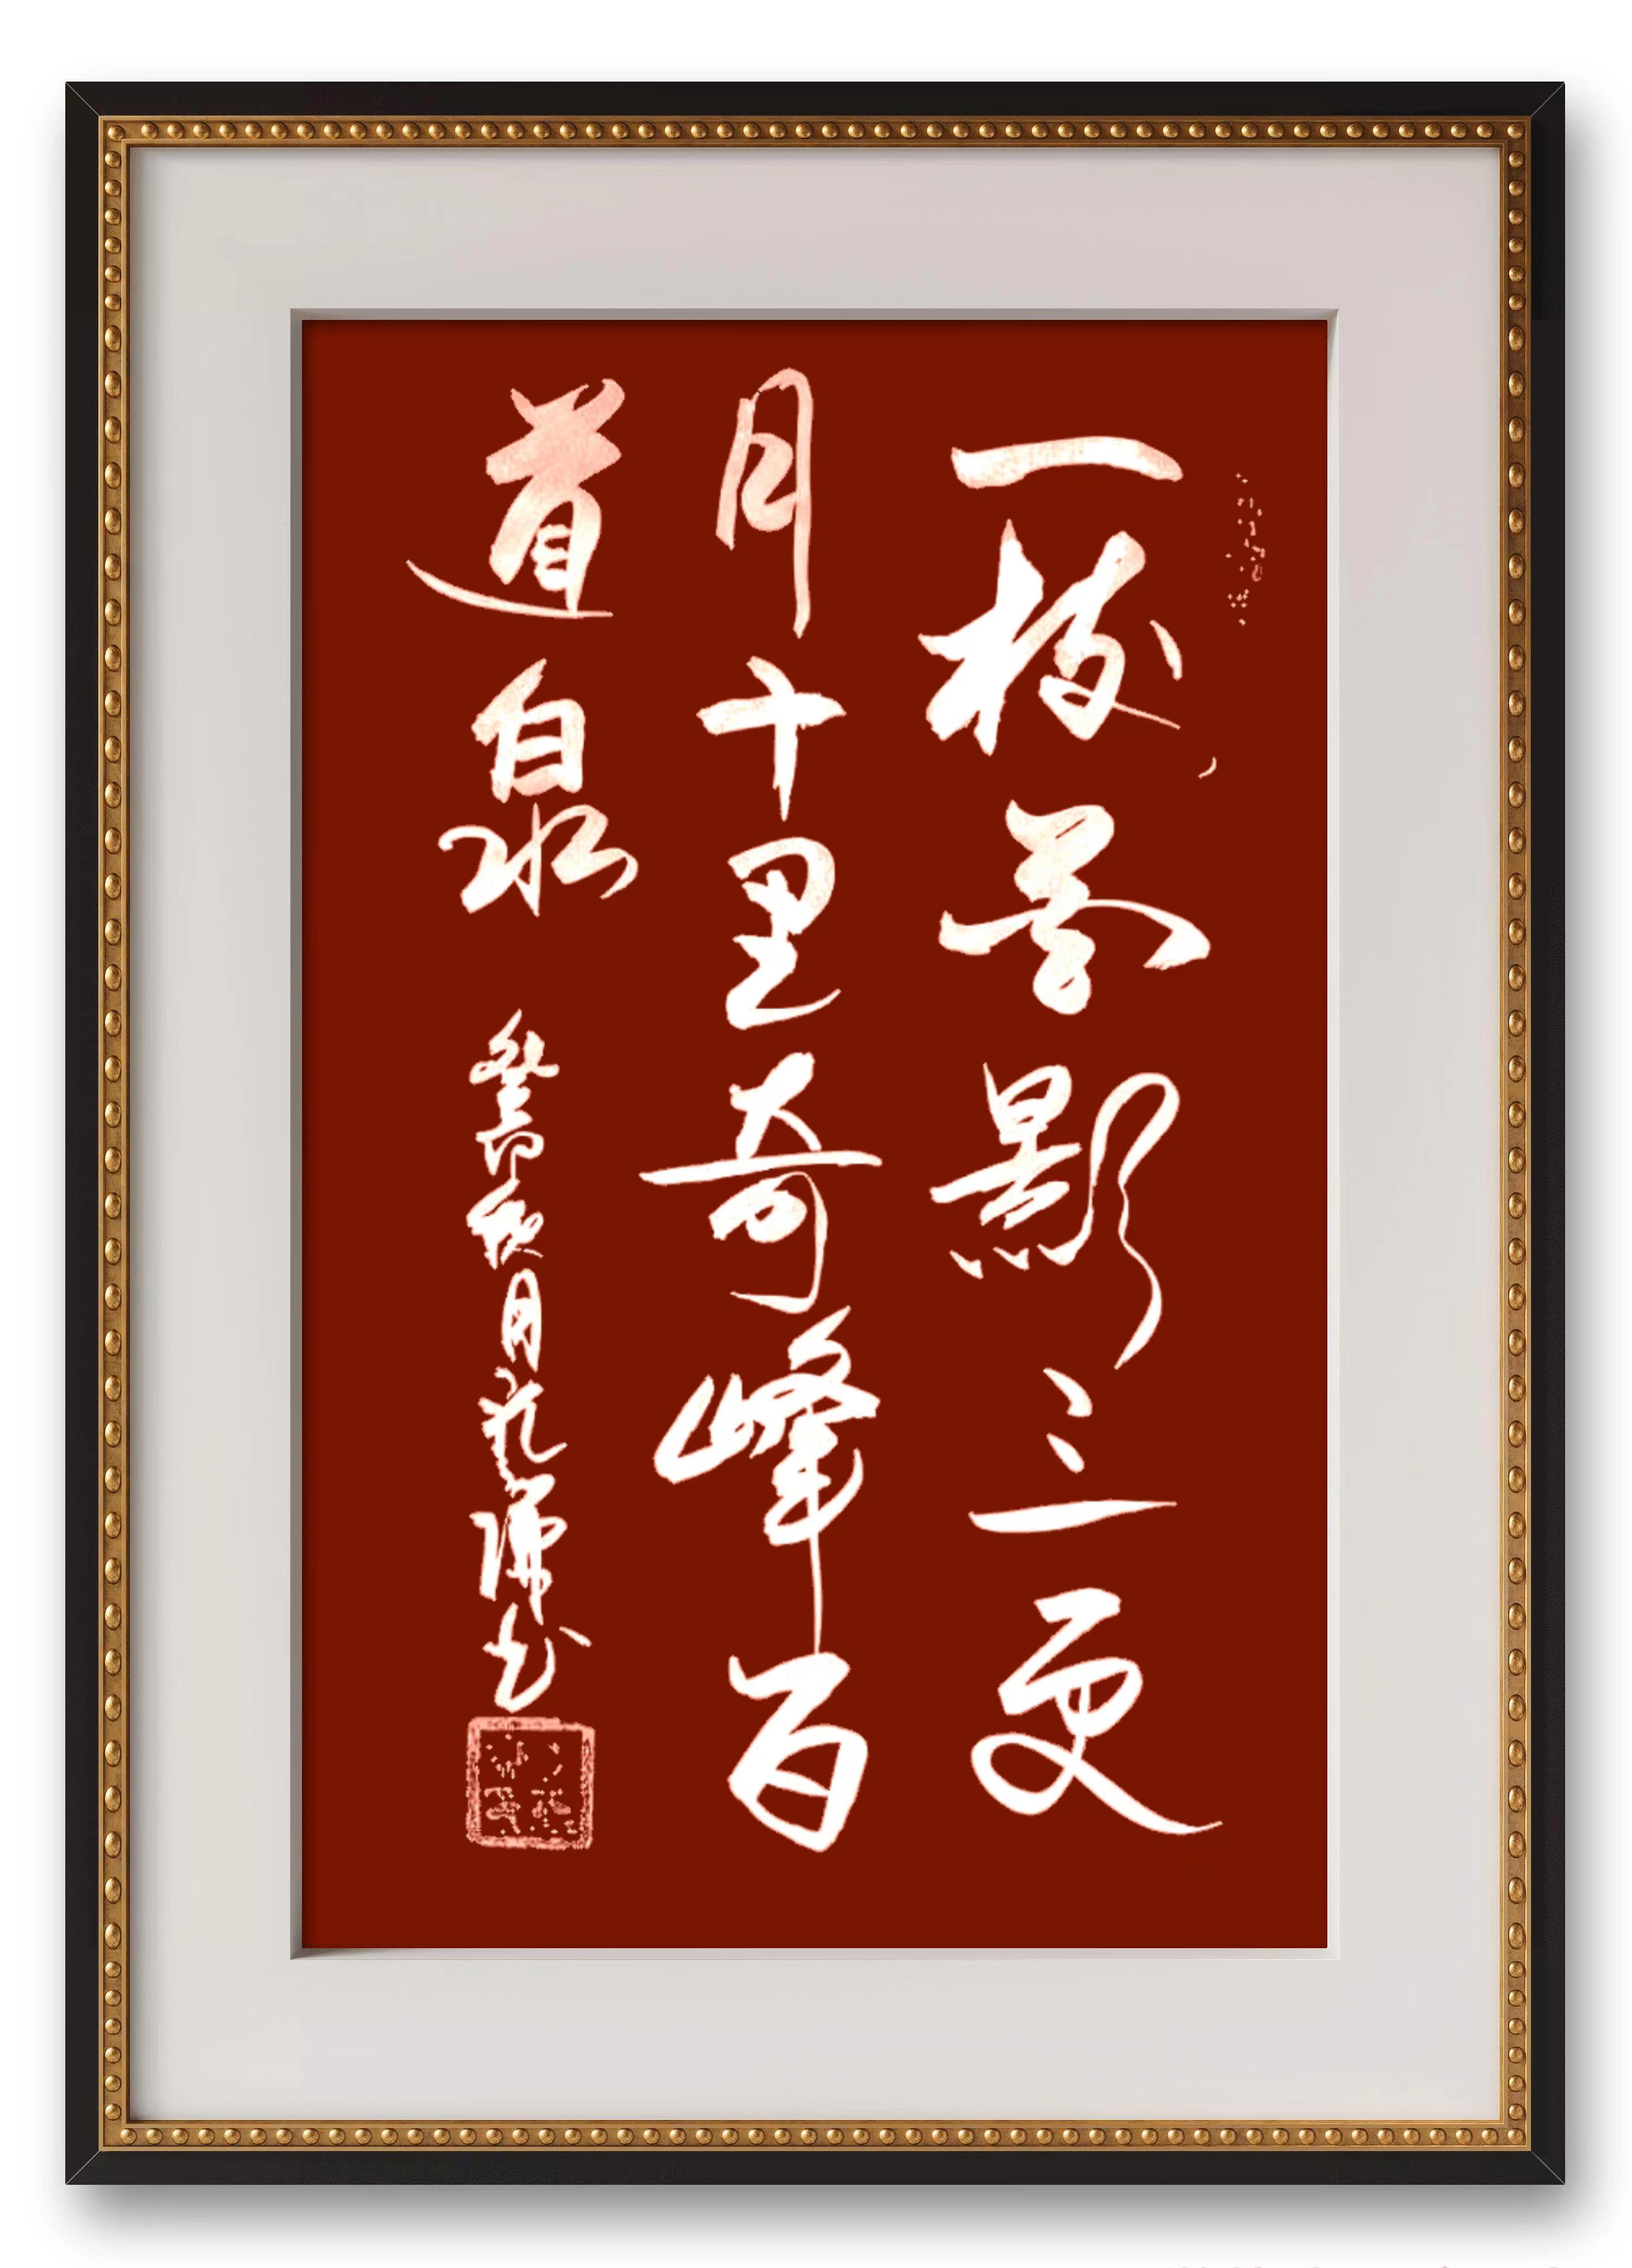 一枝花影三更
月十里奇峰百
道泉
癸卯秋月
书